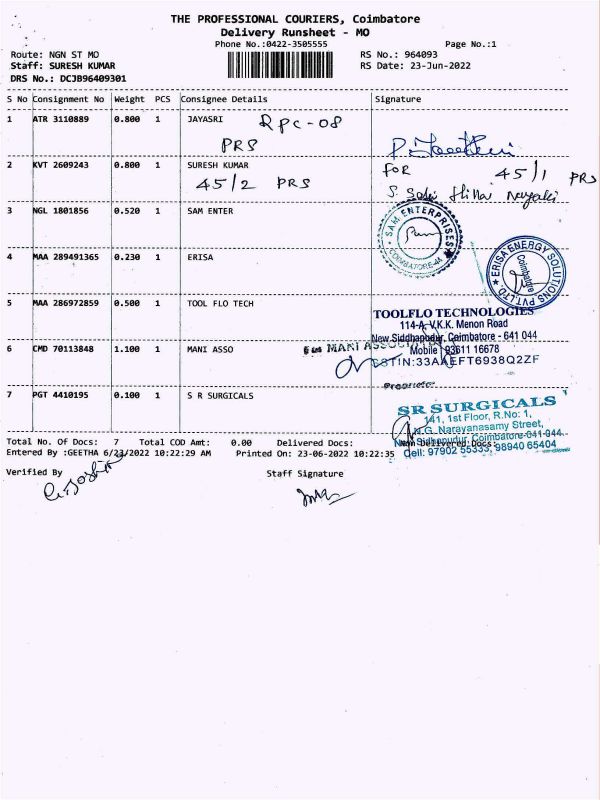 THE PROFESSIONAL COURIERS, Coimbatore
Delivery Runsheet - MO
Phone No.:0422-3505555 Page No.:1
Route: NGN ST MO RS No.: 964093
Staff: SURESH KUMAR RS Date: 23-Jun-2022
DRS No.: DCJB96409301
S No Consignment No Weight PCS Consignee Details Signature
1 ATR 3110889 0.800 1 JAYASRI RPC-08
PRS
2 KVT 2609243 0.800 1 SURESH KUMAR FOR 45/1 PRS
45/2 PRS
3 NGL 1801856 0.520 1 SAM ENTER
SAM ENTERPRISES
COIMBATORE-44
4 MAA 289491365 0.230 1 ERISA
ERISA ENERGY SOLUTIONS PVT LTD
Coimbatore
5 MAA 286972859 0.500 1 TOOL FLO TECH
TOOLFLO TECHNOLOGIES
114-A, V.K.K. Menon Road
New Siddhapudur, Coimbatore - 641 044
6 CMD 70113848 1.100 1 MANI ASSO
Mobile : 93611 16678
GSTIN:33AAEFT6938Q2ZF
Proprietor
7 PGT 4410195 0.100 1 S R SURGICALS
SR SURGICALS
141, 1st Floor, R.No: 1,
N.G. Narayanasamy Street,
New Sidhapudur, Coimbatore-641 044
Cell: 97902 55333, 98940 65404
Total No. Of Docs: 7 Total COD Amt: 0.00 Delivered Docs: Non Delivered Docs:
Entered By :GEETHA 6/23/2022 10:22:29 AM Printed On: 23-06-2022 10:22:35
Verified By Staff Signature